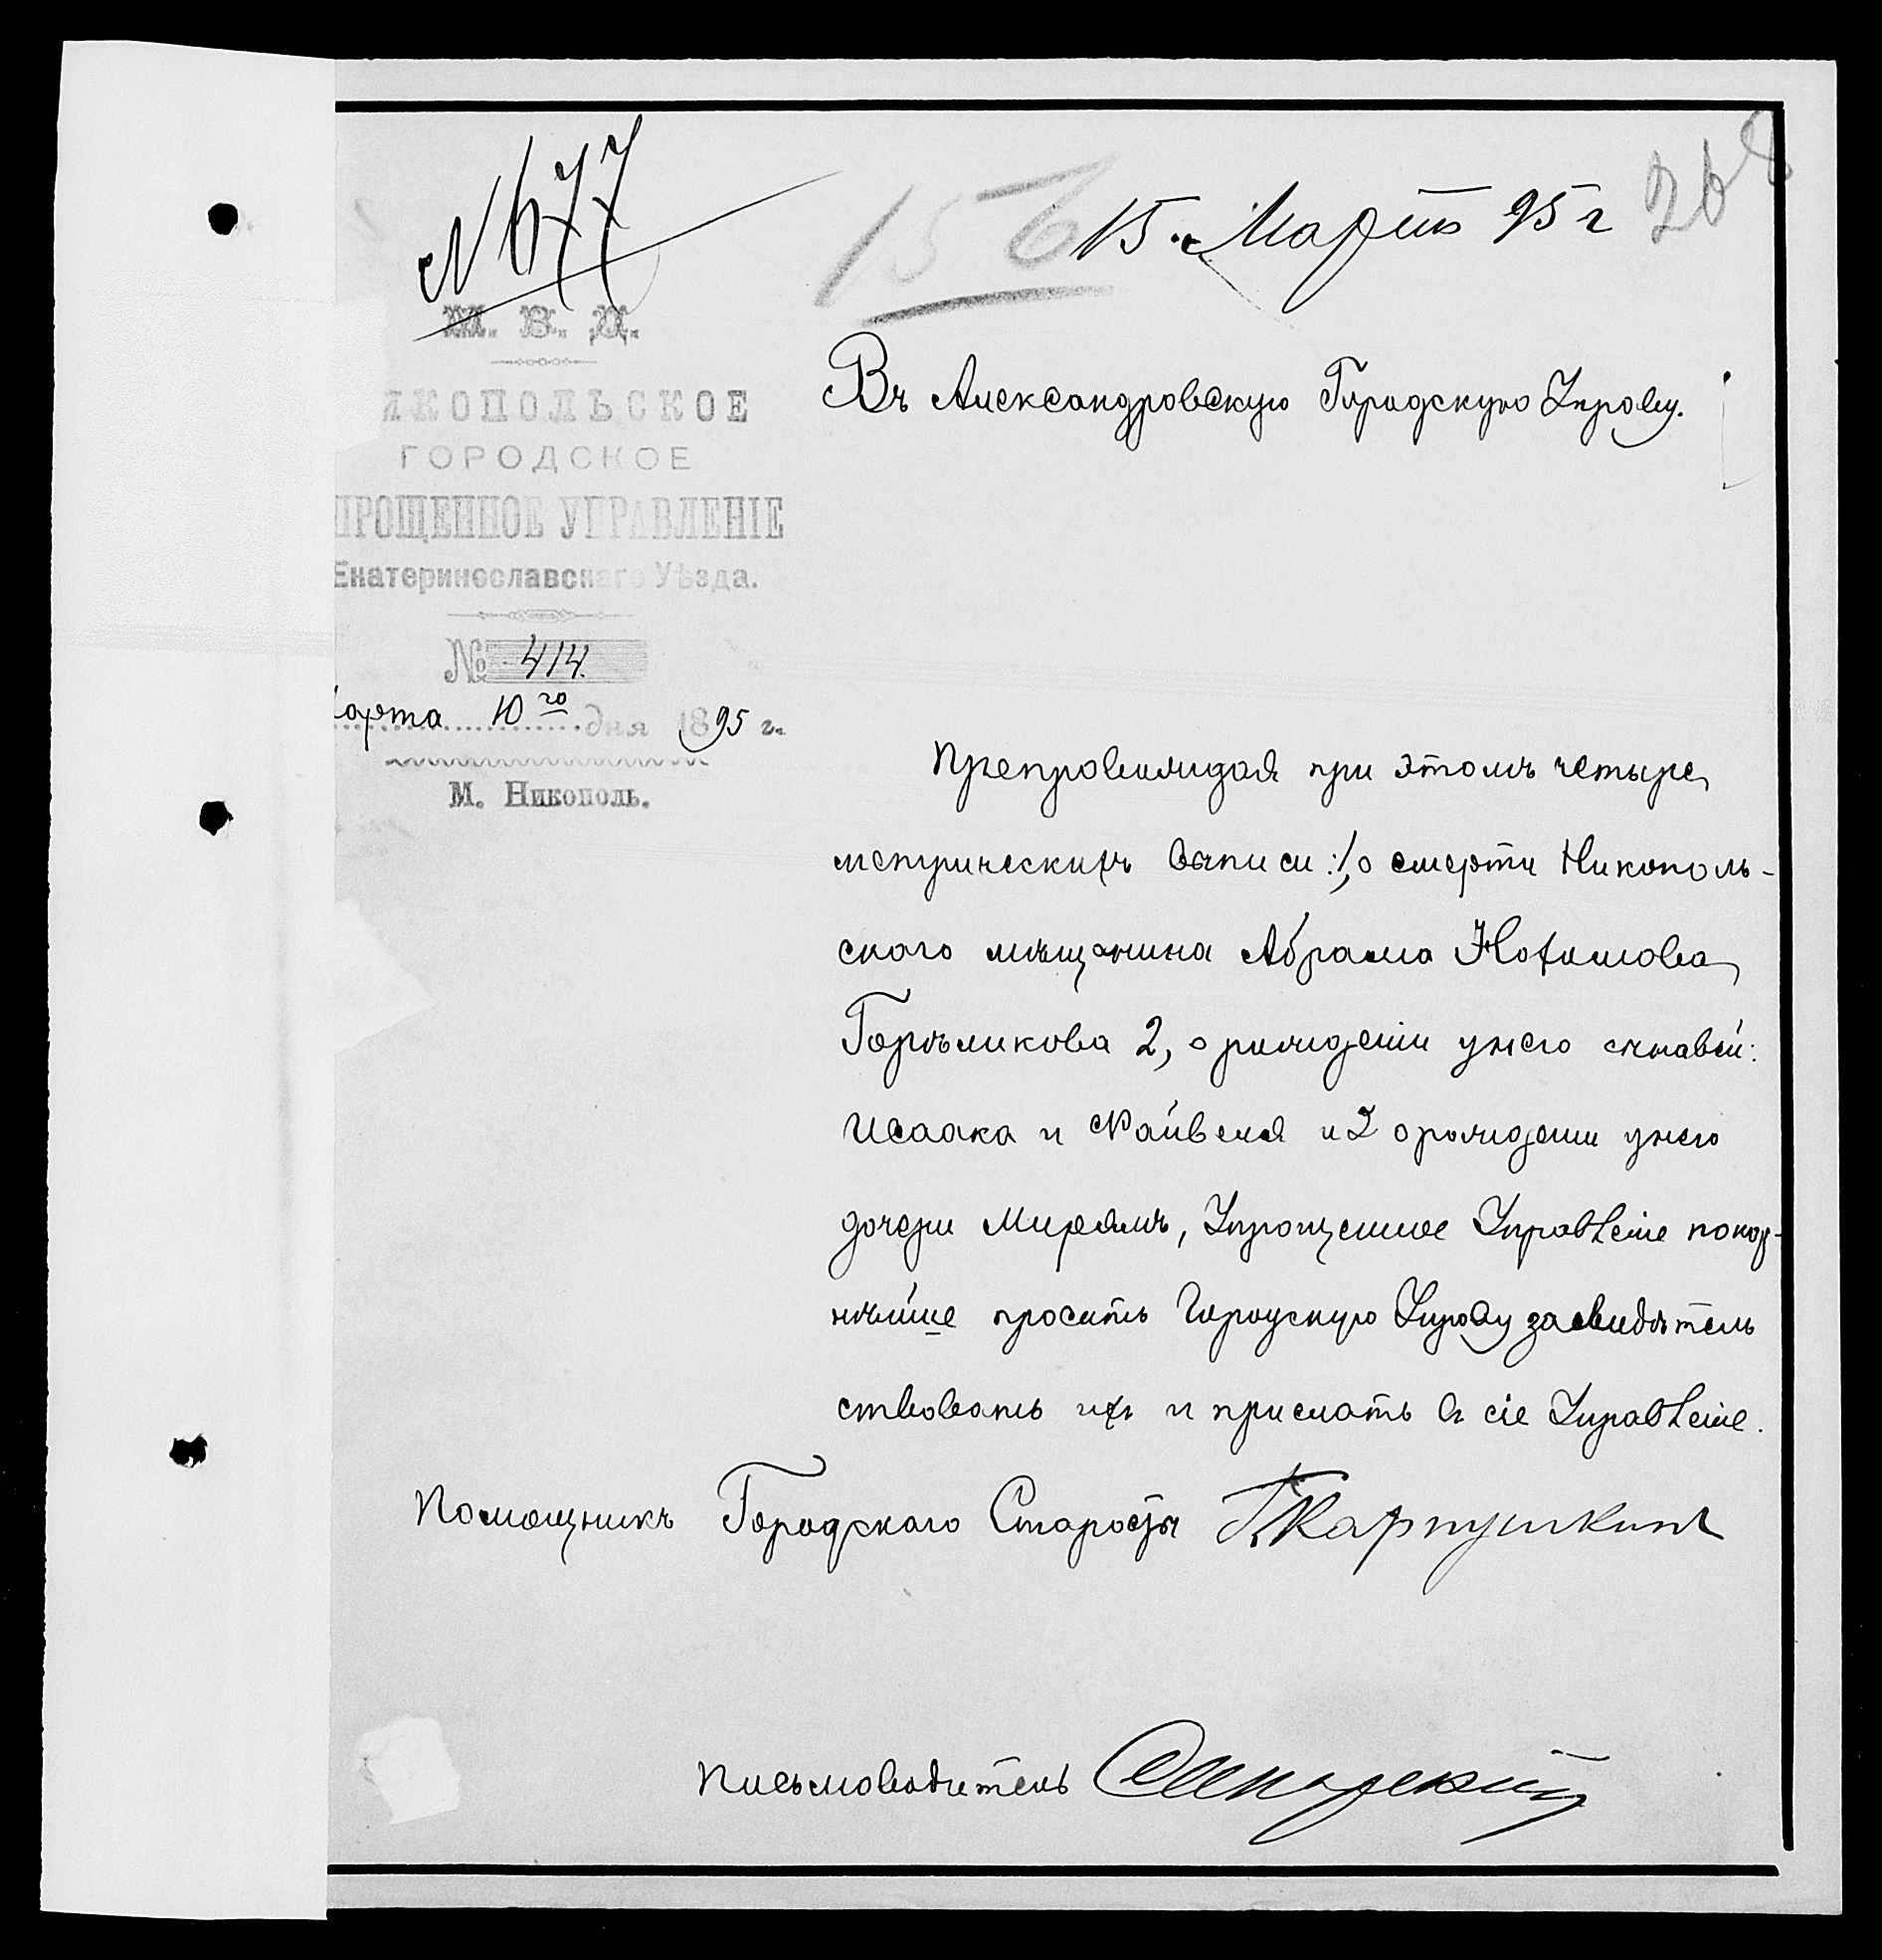 № 677
156
15 Марта 95 г
268
М. В. Д.
ИКОПОЛЬСКОЕ
ГОРОДСКОЕ
ПРОЩЕННОЕ УПРАВЛЕНІЕ
Екатеринославскаго Уѣзда.
№ 414.
арта 10 го дня 1895 г.
М. Никополь.
Въ Александровскую Городскую Управу.
Препровождая при этомъ четыре
метрическихъ выписи: 1, о смерти Никополь-
ского мѣщанина Абрама
2, о рожденіи у него сыновей:
Исаака и и 2 о рожденіи у него
дочери Мирьямъ, Упрощенное Управленіе покор-
нѣйше проситъ Городскую Управу засвидѣтель
ствовать ихъ и прислать въ сіе Управленіе.
Помощникъ Городского Старосты Карпушкинъ
Письмоводитель